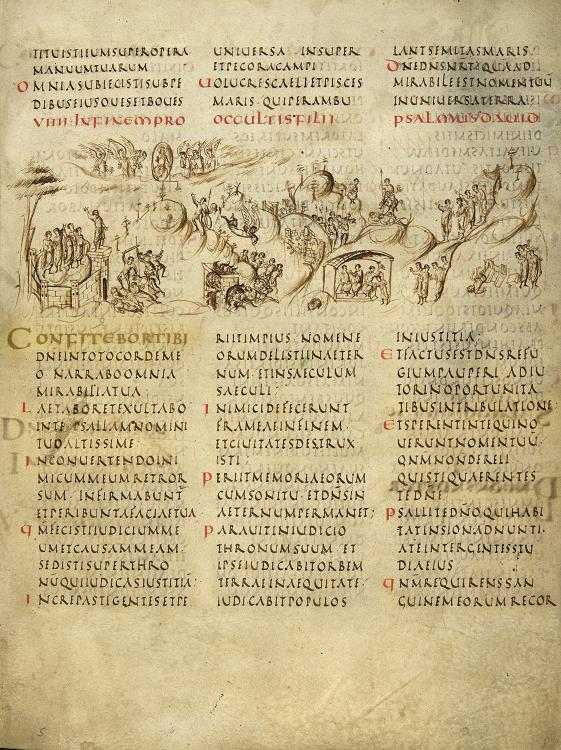 TITUISTIEUMSUPEROPERA
MANUUMTUARUM
OMNIASUBIECISTISUBPE
DIBUSEIUSOUESETBOUES
UNIUERSA INSUPER
ETPECORACAMPI
UOLUCRESCAELIETPISCES
MARIS QUIPERAMBU
LANTSEMITASMARIS
DNEDNSNRQUAAD
MIRABILEESTNOMENTUU
INUNIUERSATERRA
VIIII INFINEMPRO OCCULTISFILII PSALMUSDAUID
CONFITEBORTIBI
DNEINTOTOCORDEME
O NARRABOOMNIA
MIRABILIATUA
LAETABORETEXULTABO
INTE PSALLAMNOMINI
TUOALTISSIME
INCONUERTENDOINI
MICUMMEUMRETROR
SUM INFIRMABUNT
ETPERIBUNTAFACIAETUA
QMFECISTIIUDICIUMME
UMETCAUSAMMEAM
SEDISTISUPERTHRO
NUQUIIUDICASIUSTITIA
INCREPASTIGENTESETPE
RIITIMPIUS NOMENE
ORUMDELISTIINAETER
NUM ETINSAECULUM
SAECULI
INIMICIDEFECERUNT
FRAMEAEINFINEM
ETCIUITATESDESTRUX
ISTI
PERIITMEMORIAEORUM
CUMSONITU ETDNSIN
AETERNUMPERMANET
PARAUITINIUDICIO
THRONUMSUUM ET
IPSEIUDICABITORBEM
TERRAEINAEQUITATE
IUDICABITPOPULOS
INIUSTITIA
ETFACTUSESTDNSREFU
GIUMPAUPERI ADIU
TORINOPORTUNITA
TIBUSINTRIBULATIONE
ETSPERENTINTEQUINO
UERUNTNOMENTUU
QNMNONDERELI
QUISTIQUAERENTES
TEDNE
PSALLITEDNOQUIHABI
TATINSIONADNUNTI
ATEINTERGENTESSTU
DIAEIUS
QNMREQUIRENSSAN
GUINEMEORUMRECOR